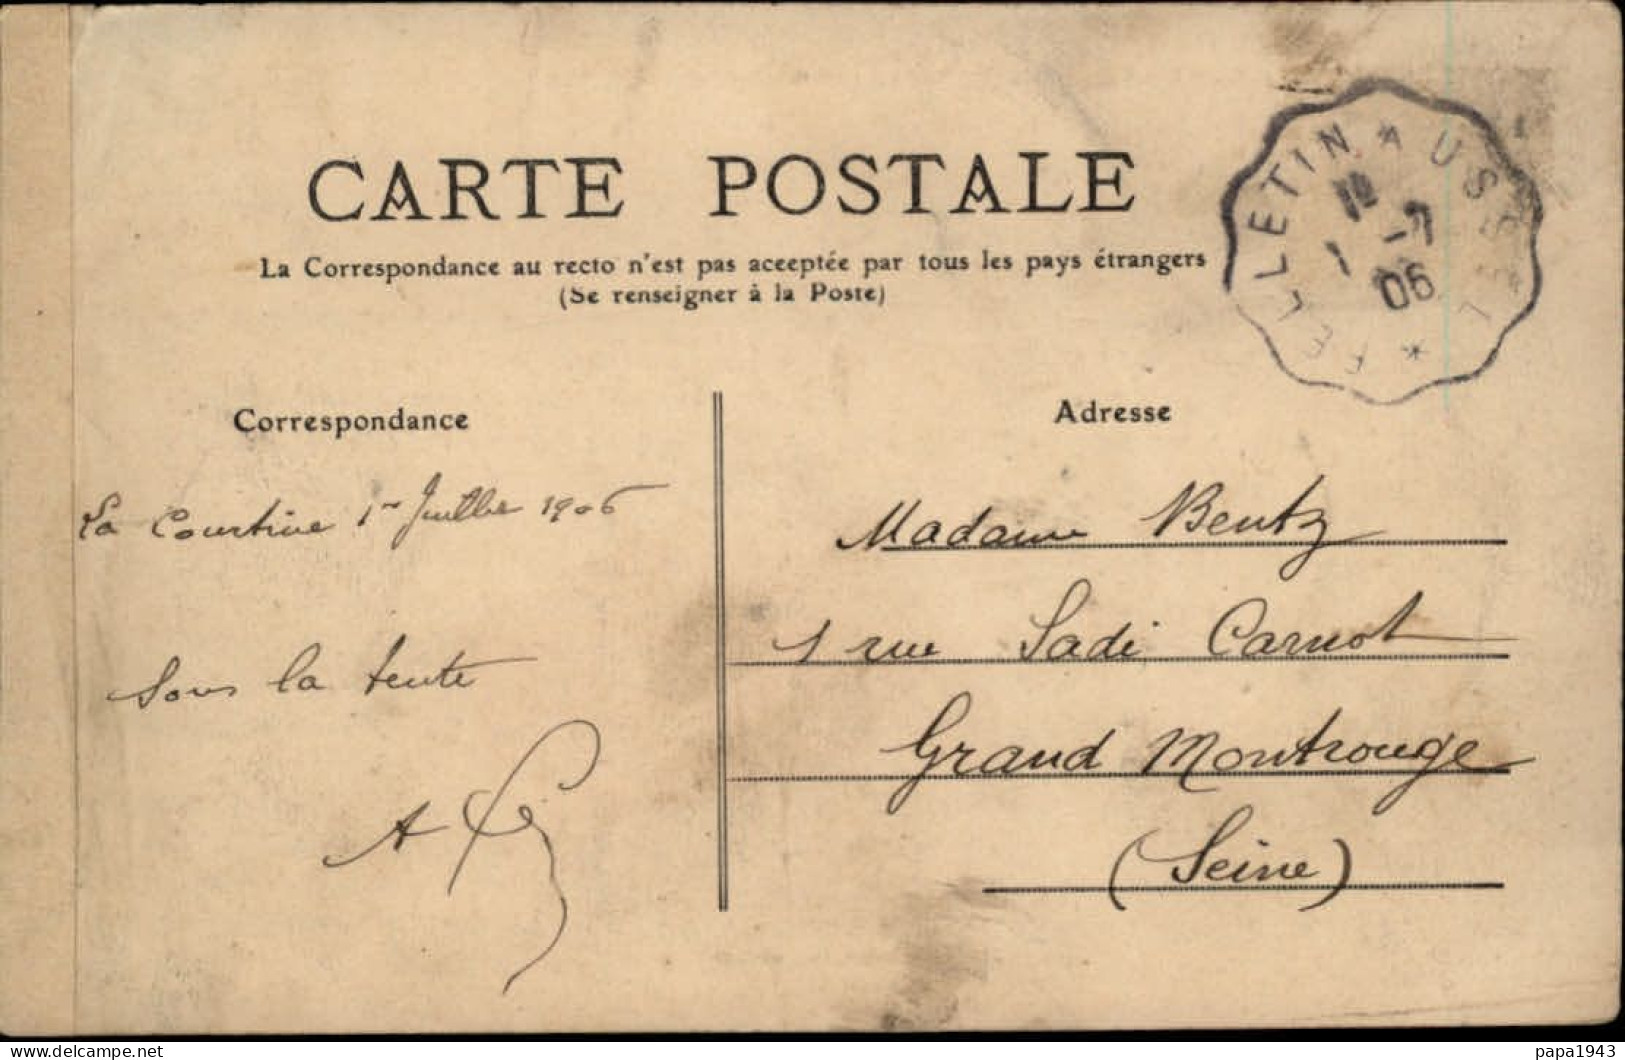 CARTE POSTALE
La Correspondance au recto n'est pas acceptée par tous les pays étrangers
(Se renseigner à la Poste)
FELLETIN A USSEL *
1 -7
06
Correspondance
La Courtine 1er Juillet 1906
Sous la tente
A
Adresse
Madame Bentz
1 rue Sadi Carnot
Grand Montrouge
(Seine)
delcampe.net
papa1943